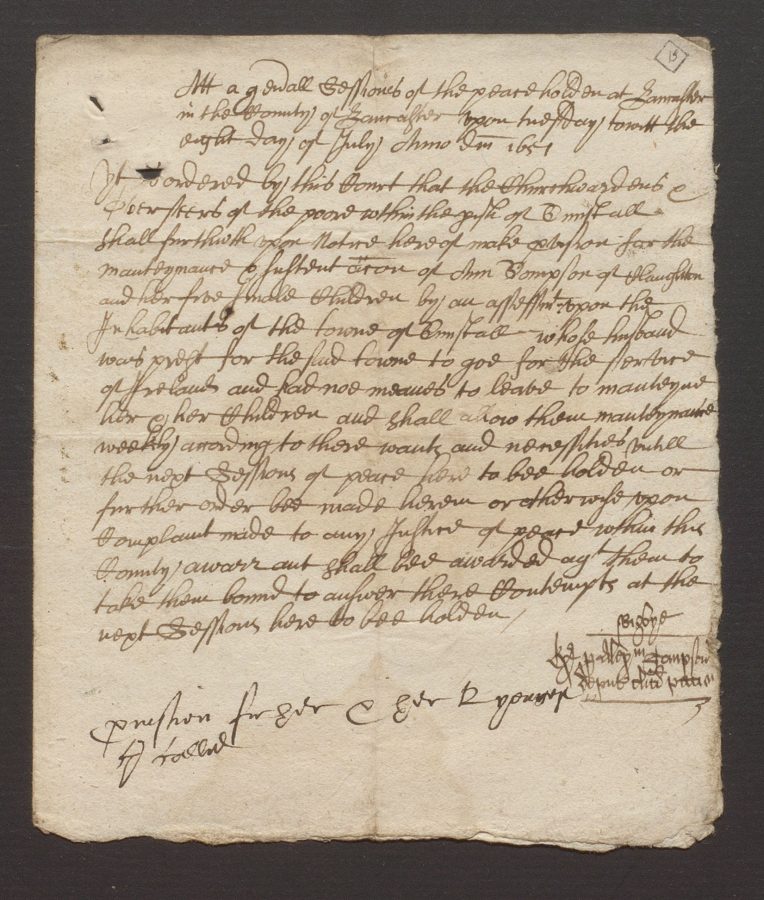 Att a genall Sessions of the peace holden at Lancaster
in the County of Lancaster upon tuesday towitt the
eight day of July Anno dm 1651
Yt is ordered by this Court that the Churchwardens &
Overseers of the poore within the pish of
shall furthwth upon Notice hereof make pvision for the
manteynance & sustentacon of Ann Sompson of Claughton
and her five smale Children by an assessmt upon the
Inhabitants of the towne of whose husband
was prest for the said towne to goe for the service
of Ireland and had noe meanes to leave to manteyne
her & her Children and shall allow them manteynance
weekly according to there wants and necessities untill
the next Sessions of peace here to bee holden or
further order bee made herein or otherwise upon
Complaint made to any Justice of peace within this
County a warrant shall bee awarded agt them to
take them bound to answer there Contempts at the
next Sessions here to bee holden
deputi
pvision for her & her
called